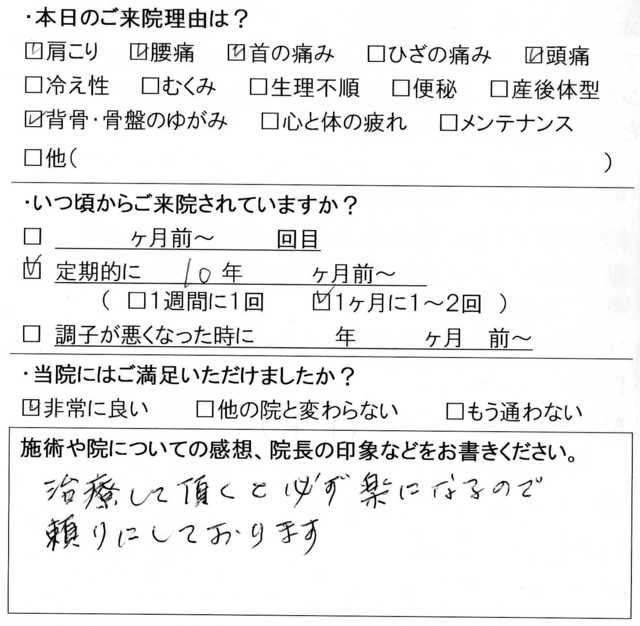 ・本日のご来院理由は？
☑肩こり ☑腰痛 ☑首の痛み □ひざの痛み ☑頭痛
□冷え性 □むくみ □生理不順 □便秘 □産後体型
☑背骨・骨盤のゆがみ □心と体の疲れ □メンテナンス
□他( )
・いつ頃からご来院されていますか？
□ ヶ月前～ 回目
☑ 定期的に 10年 ヶ月前～
( □1週間に1回 ☑1ヶ月に1～2回 )
□ 調子が悪くなった時に 年 ヶ月 前～
・当院にはご満足いただけましたか？
☑非常に良い □他の院と変わらない □もう通わない
施術や院についての感想、院長の印象などをお書きください。
治療して頂くと必ず楽になるので
頼りにしております